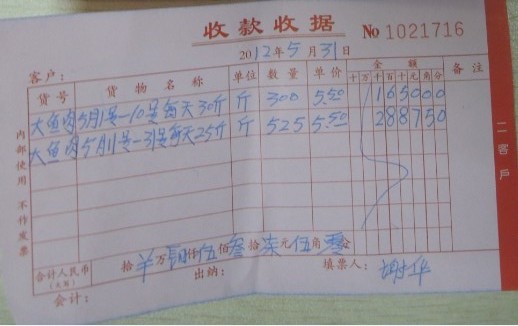 收款收据 No 1021716
2012年5月31日
客户：
货号 货物名称 单位 数量 单价 金额 备注
十万千百十元角分
大鱼肉 5月1号—10号每天30斤 斤 300 5.50 165000
大鱼肉 5月11号—31号每天25斤 斤 525 5.50 288750
合计人民币（大写） 拾 万 仟伍佰叁拾柒元伍角零分
会计： 出纳： 填票人：
内部使用 不作发票
二客户